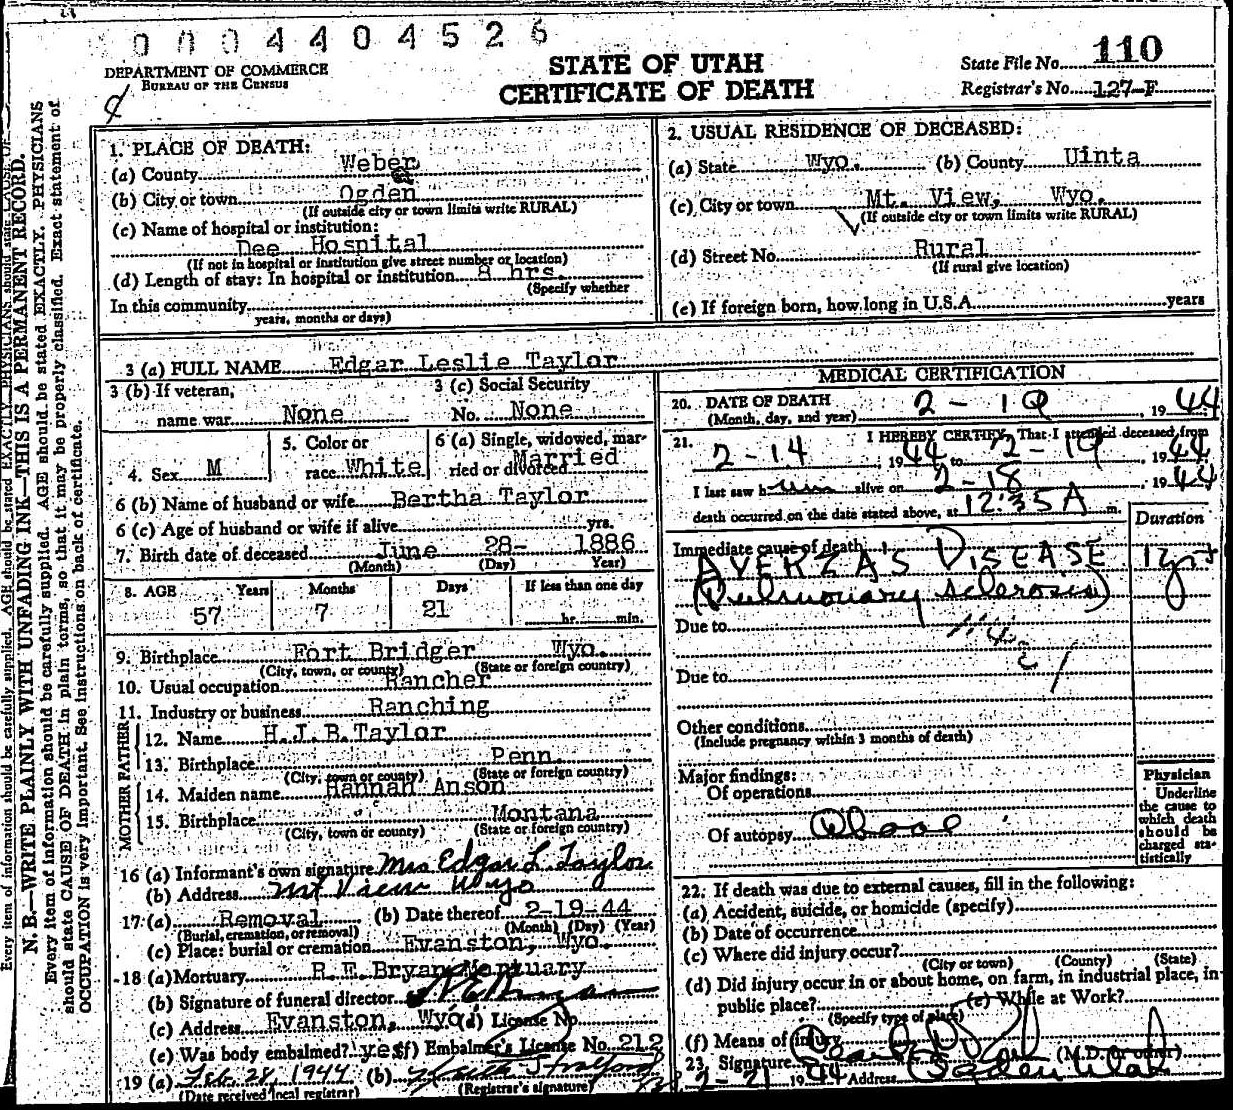 0004404526
DEPARTMENT OF COMMERCE
BUREAU OF THE CENSUS
STATE OF UTAH
CERTIFICATE OF DEATH
State File No. 110
Registrar's No. 127-F
N. B.—WRITE PLAINLY WITH UNFADING INK—THIS IS A PERMANENT RECORD.
Every item of information should be carefully supplied. AGE should be stated EXACTLY. PHYSICIANS
should state CAUSE OF DEATH in plain terms, so that it may be properly classified. Exact statement of
OCCUPATION is very important. See instructions on back of certificate.
1. PLACE OF DEATH:
(a) County Weber
(b) City or town Ogden
(If outside city or town limits write RURAL)
(c) Name of hospital or institution:
Dee Hospital
(If not in hospital or institution give street number or location)
(d) Length of stay: In hospital or institution 8 hrs.
(Specify whether
In this community
years, months or days)
2. USUAL RESIDENCE OF DECEASED:
(a) State Wyo. (b) County Uinta
(c) City or town Mt. View, Wyo.
(If outside city or town limits write RURAL)
(d) Street No. Rural
(If rural give location)
(e) If foreign born, how long in U.S.A. years
3 (a) FULL NAME Edgar Leslie Taylor
3 (b) If veteran, 3 (c) Social Security
name war None No. None
4. Sex M 5. Color or race White 6 (a) Single, widowed, married or divorced Married
6 (b) Name of husband or wife Bertha Taylor
6 (c) Age of husband or wife if alive yrs.
7. Birth date of deceased June 28- 1886
(Month) (Day) Year)
8. AGE Years Months Days If less than one day
57 7 21 hr. min.
9. Birthplace Fort Bridger Wyo.
(City, town, or county) (State or foreign country)
10. Usual occupation Rancher
11. Industry or business Ranching
FATHER
12. Name H.J.B.Taylor
13. Birthplace Penn.
(City, town or county) (State or foreign country)
MOTHER
14. Maiden name Hannah Anson
15. Birthplace Montana
(City, town or county) (State or foreign country)
16 (a) Informant's own signature Mrs Edgar L Taylor
(b) Address Mt View Wyo
17 (a) Removal (b) Date thereof 2-19-44
(Burial, cremation, or removal) (Month) (Day) (Year)
(c) Place: burial or cremation Evanston, Wyo.
18 (a) Mortuary R.E.Bryan Mortuary
(b) Signature of funeral director
(c) Address Evanston, Wyo. (d) License No.
(e) Was body embalmed? yes (f) Embalmer's License No. 212
19 (a) Feb. 28, 1944 (b)
(Date received local registrar) (Registrar's signature)
MEDICAL CERTIFICATION
20. DATE OF DEATH
(Month, day, and year) 2-19, 1944
21. I HEREBY CERTIFY, That I attended deceased from
2-14 1944 to 2-19, 1944
I last saw him alive on 2-18, 1944
death occurred on the date stated above, at 12:35 A m.
Duration
Immediate cause of death
AYERZAS DISEASE 12 yrs
(Pulmonary sclerosis)
Due to
Due to
Other conditions
(Include pregnancy within 3 months of death)
Major findings:
Of operations
Of autopsy
Physician
Underline
the cause to
which death
should be
charged sta-
tistically
22. If death was due to external causes, fill in the following:
(a) Accident, suicide, or homicide (specify)
(b) Date of occurrence
(c) Where did injury occur?
(City or town) (County) (State)
(d) Did injury occur in or about home, on farm, in industrial place, in
public place? (e) While at Work?
(Specify type of place)
(f) Means of injury
23. Signature (M.D. or other)
2-21 1944 Address Ogden Utah